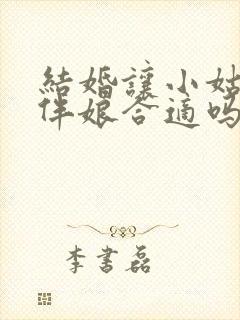 結婚讓小姑
伴娘合適嗎
李書磊